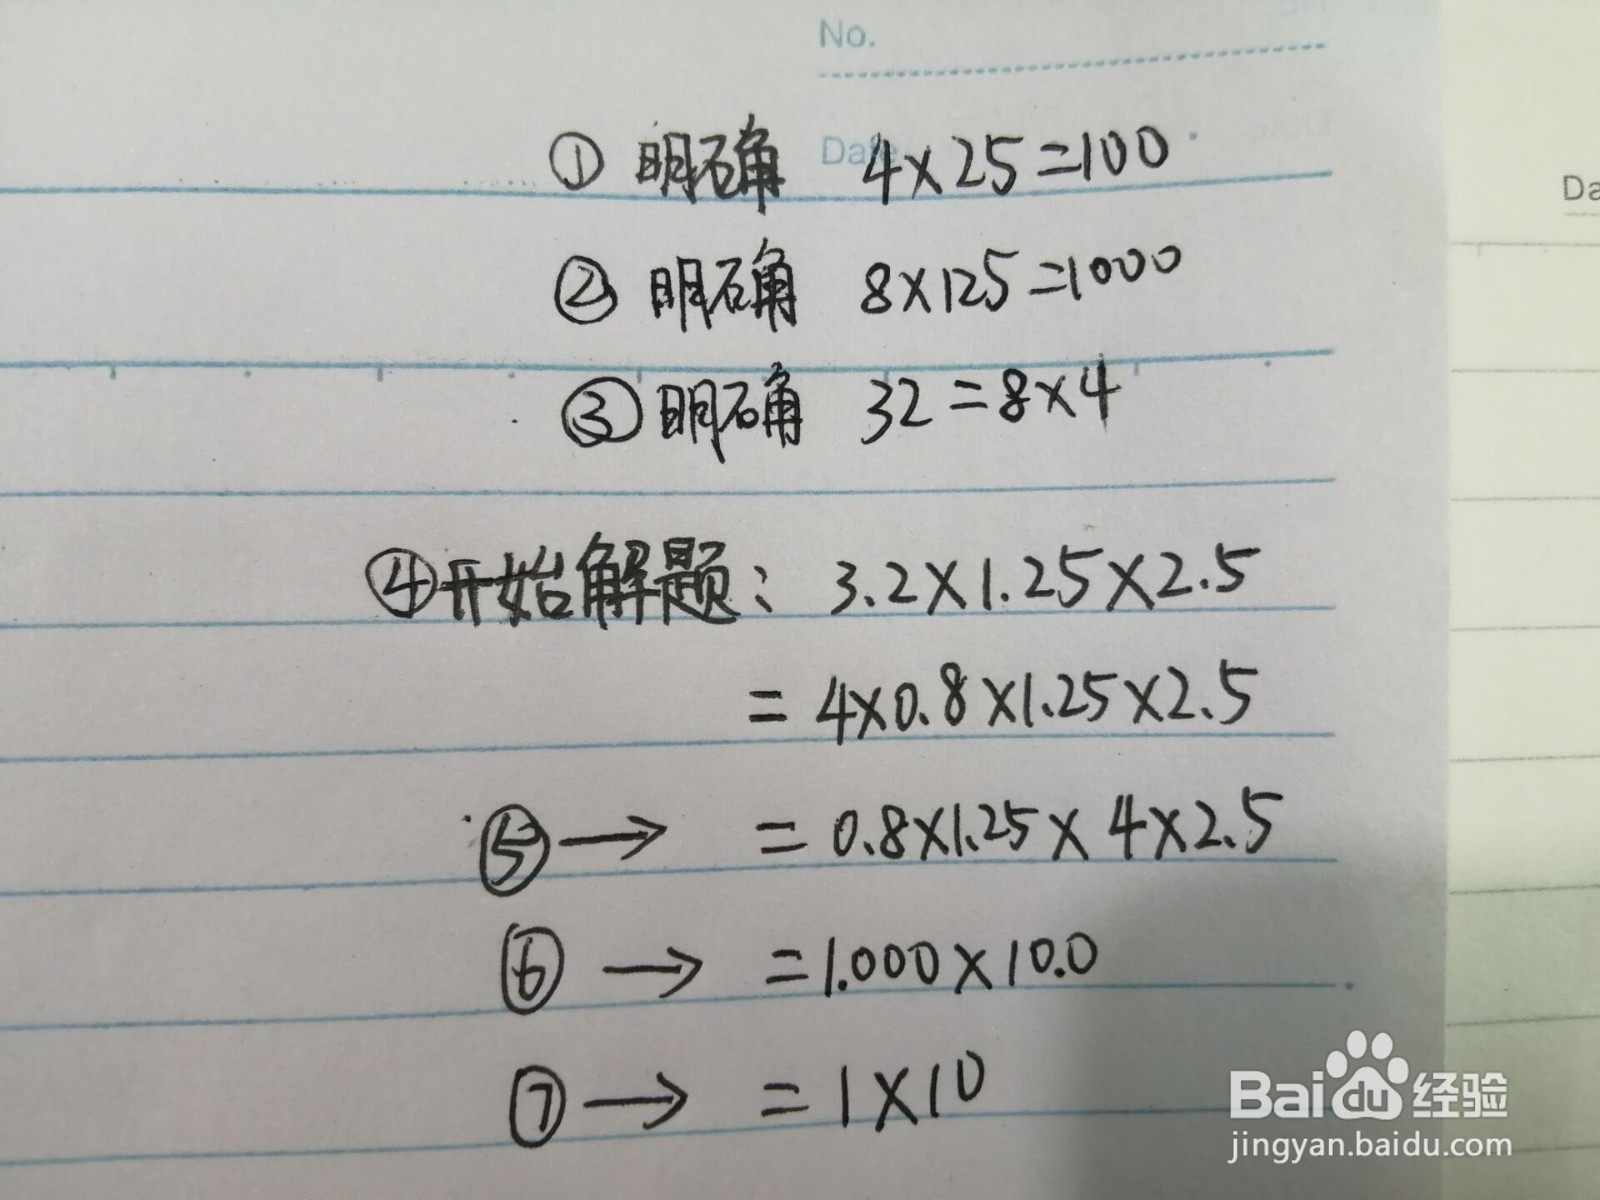 No.
Date
Da
① 明确 4×25=100
② 明确 8×125=1000
③ 明确 32=8×4
④开始解题: 3.2×1.25×2.5
=4×0.8×1.25×2.5
⑤→ =0.8×1.25×4×2.5
⑥→ =1.000×10.0
⑦→ =1×10
Bai du 经验
jingyan.baidu.com